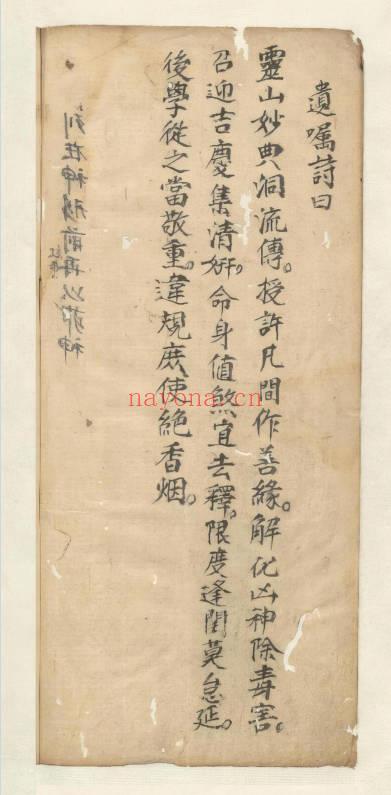 遺嘱詩曰
靈山妙典洞流傳。授許凡間作善緣。解化凶神除毒害。
召迎吉慶集清妍。命身值煞宜去釋。限度逢閏莫怠延。
後學從之當敬重。違規庶使絕香烟。
列在神 前再以 神
nayona.cn